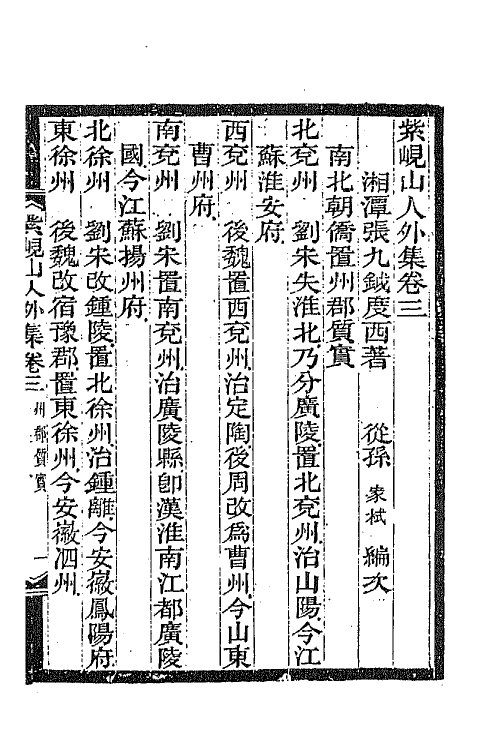 紫峴山人外集卷三
湘潭張九鉞度西著　從孫家栻編次
南北朝僑置州郡質實
北兗州　劉宋失淮北乃分廣陵置北兗州治山陽今江
蘇淮安府
西兗州　後魏置西兗州治定陶後周改爲曹州今山東
曹州府
南兗州　劉宋置南兗州治廣陵縣卽漢淮南江都廣陵
國今江蘇揚州府
北徐州　劉宋改鍾陵置北徐州治鍾離今安徽鳳陽府
東徐州　後魏改宿豫郡置東徐州今安徽泗州
紫峴山人外集卷三　州郡質實　一